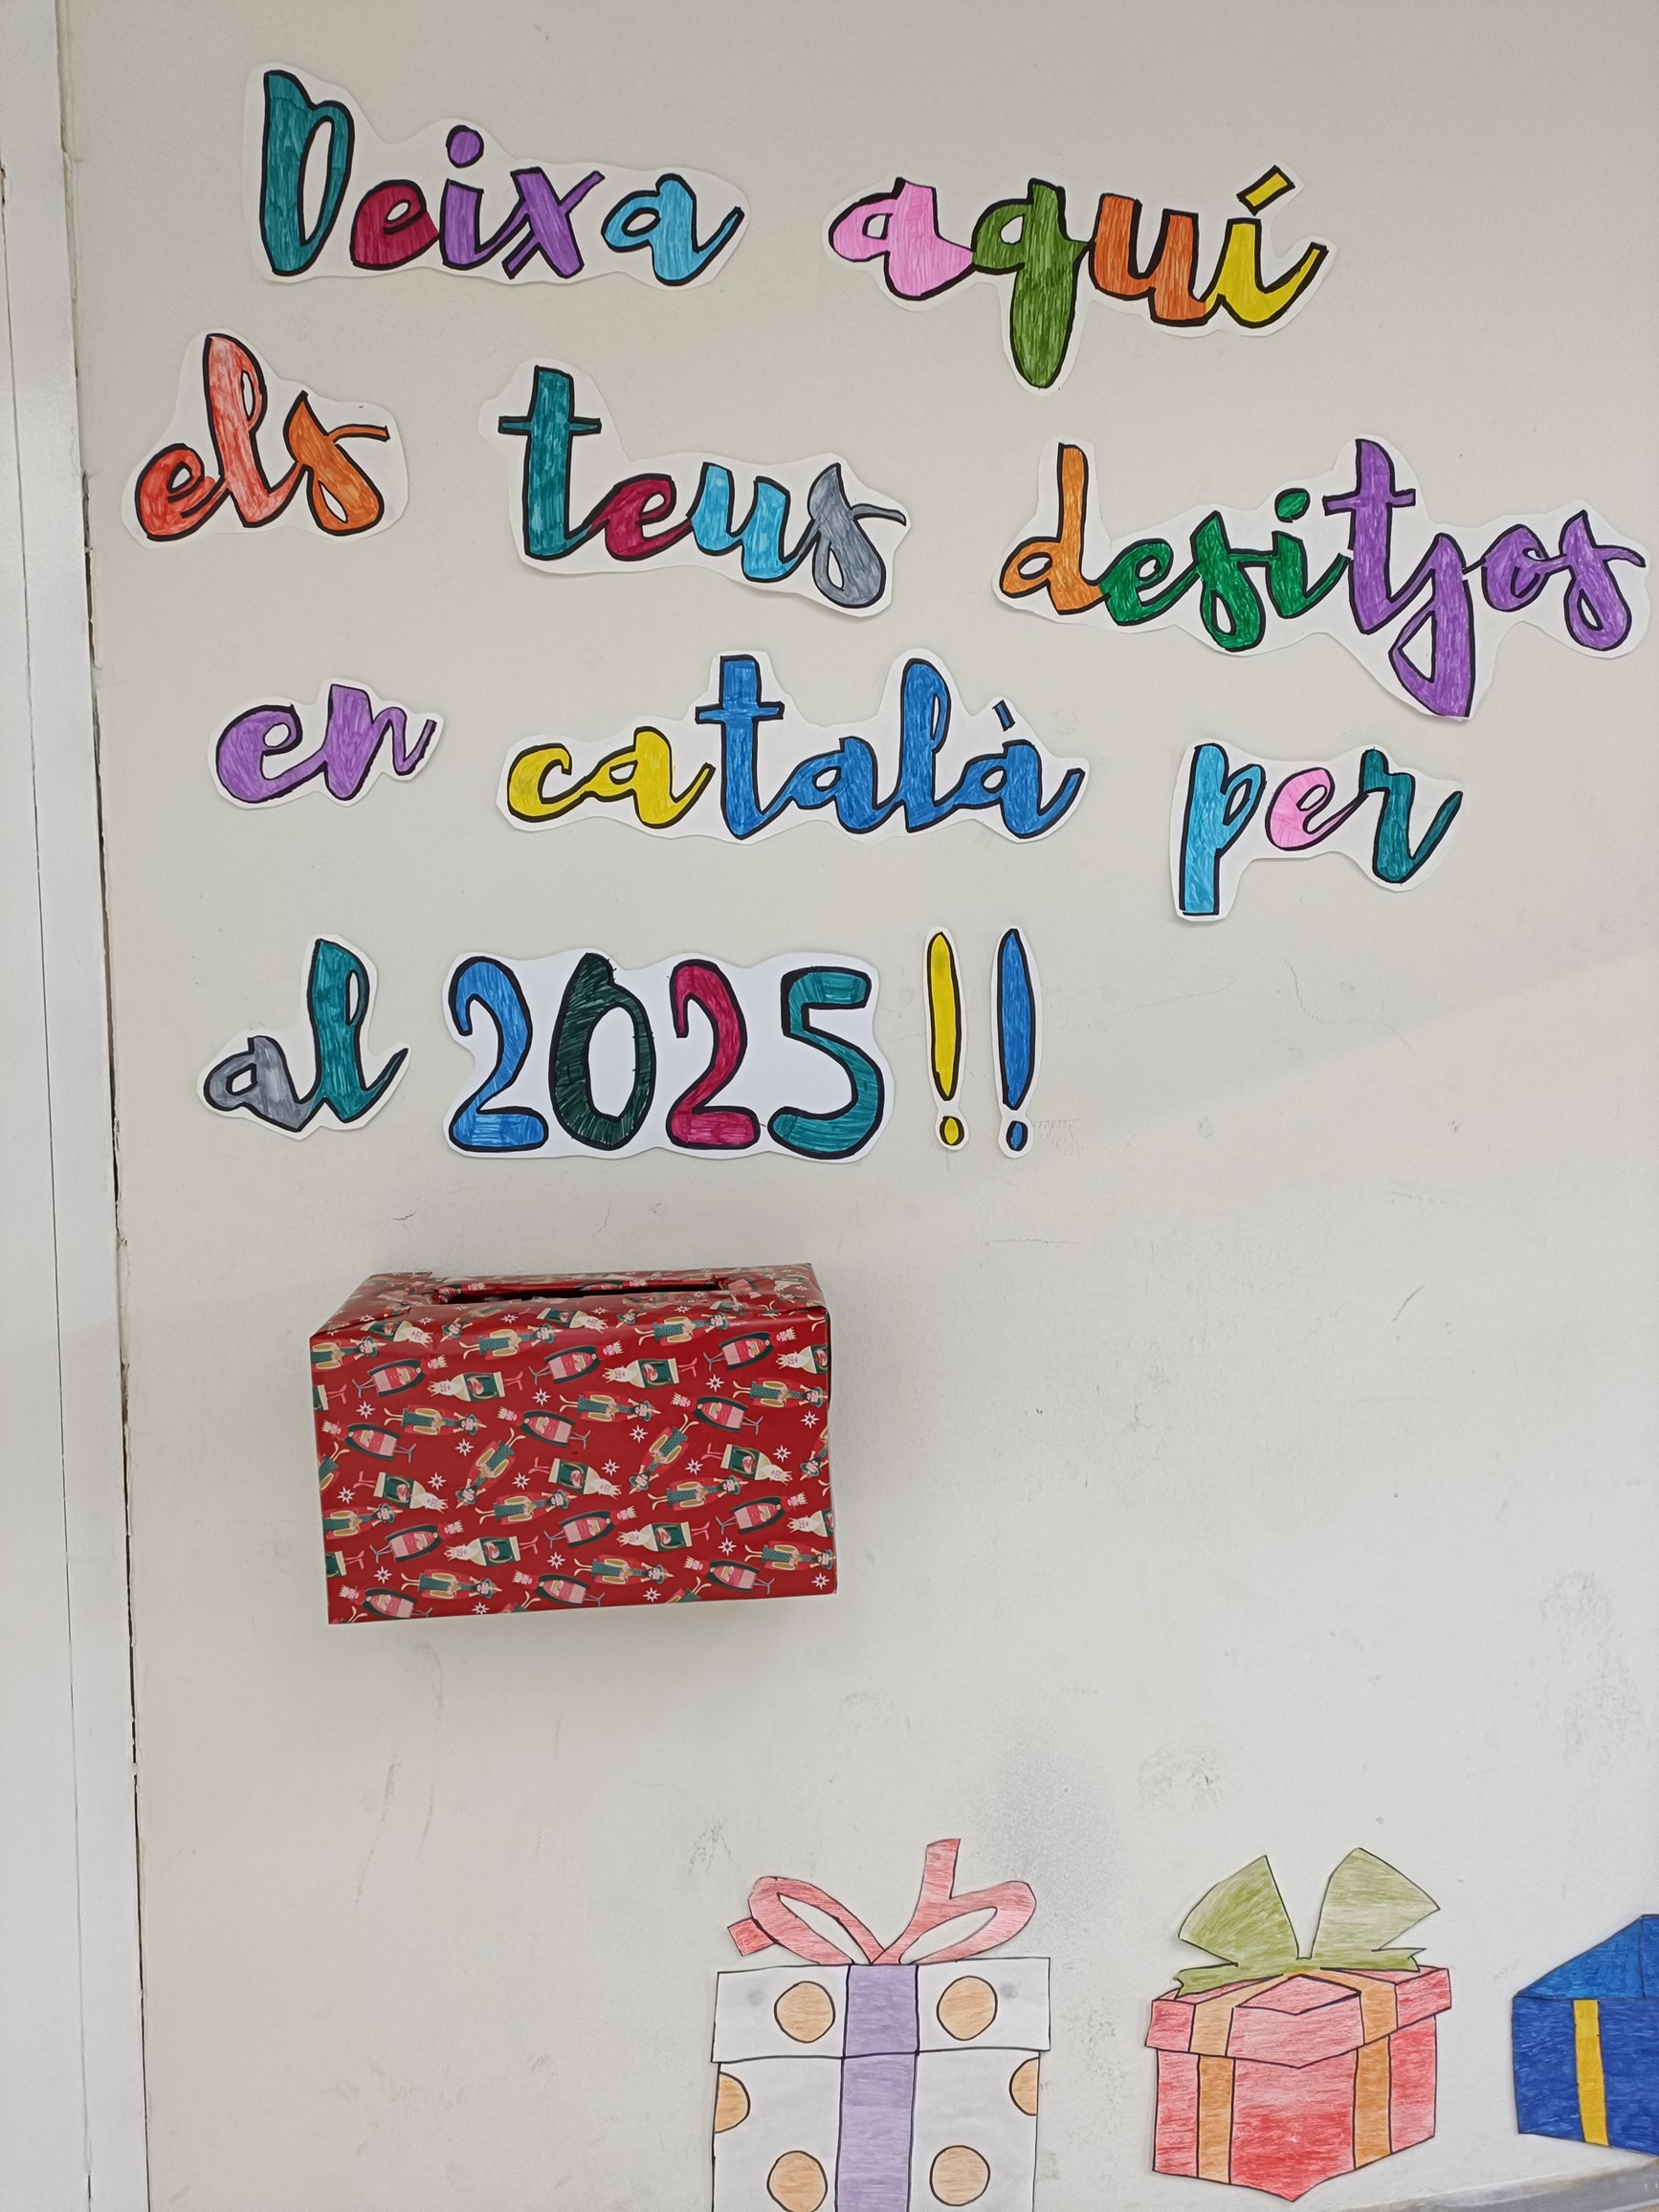 Deixa aquí
els teus desitjos
en català per
al 2025!!